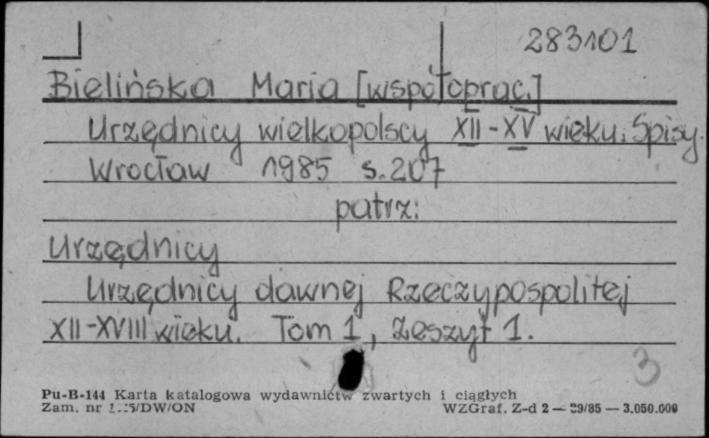 283101
Bielińska Maria [współoprac.]
Urzędnicy wielkopolscy XII-XV wieku. Spisy.
Wrocław 1985 s.207
patrz:
Urzędnicy
Urzędnicy dawnej Rzeczypospolitej
XII-XVIII wieku. Tom 1, Zeszyt 1.
3
Pu-B-144 Karta katalogowa wydawnictw zwartych i ciągłych
Zam. nr WZGraf. Z-d 2 — 29/85 — 3.050.000